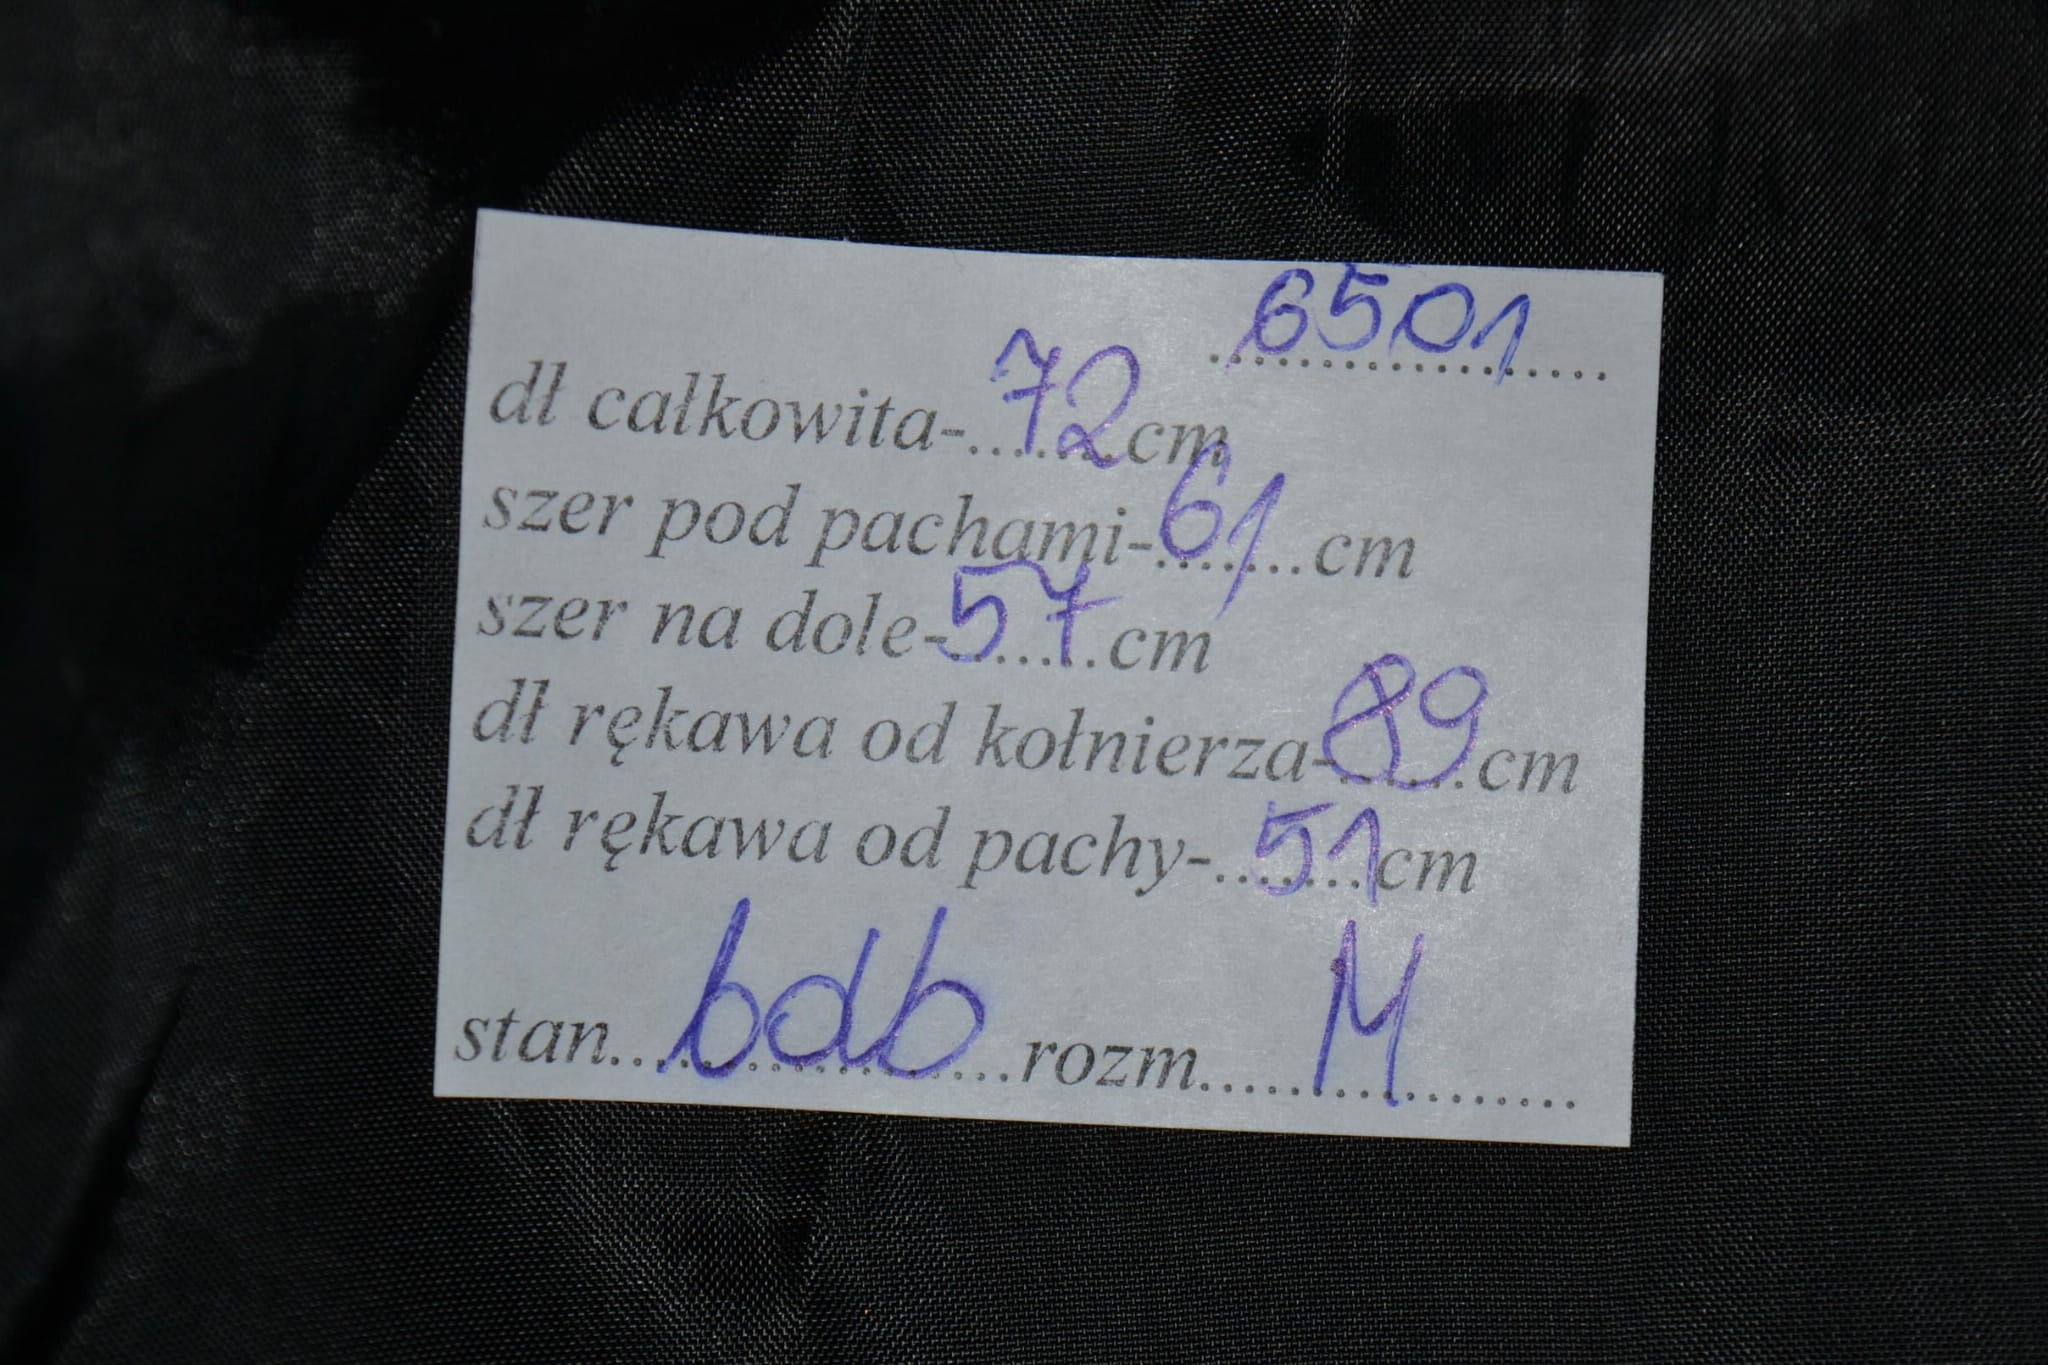 6501
dł całkowita-72cm
szer pod pachami-61cm
szer na dole-57cm
dł rękawa od kołnierza-89cm
dł rękawa od pachy-51cm
stan bdb rozm M